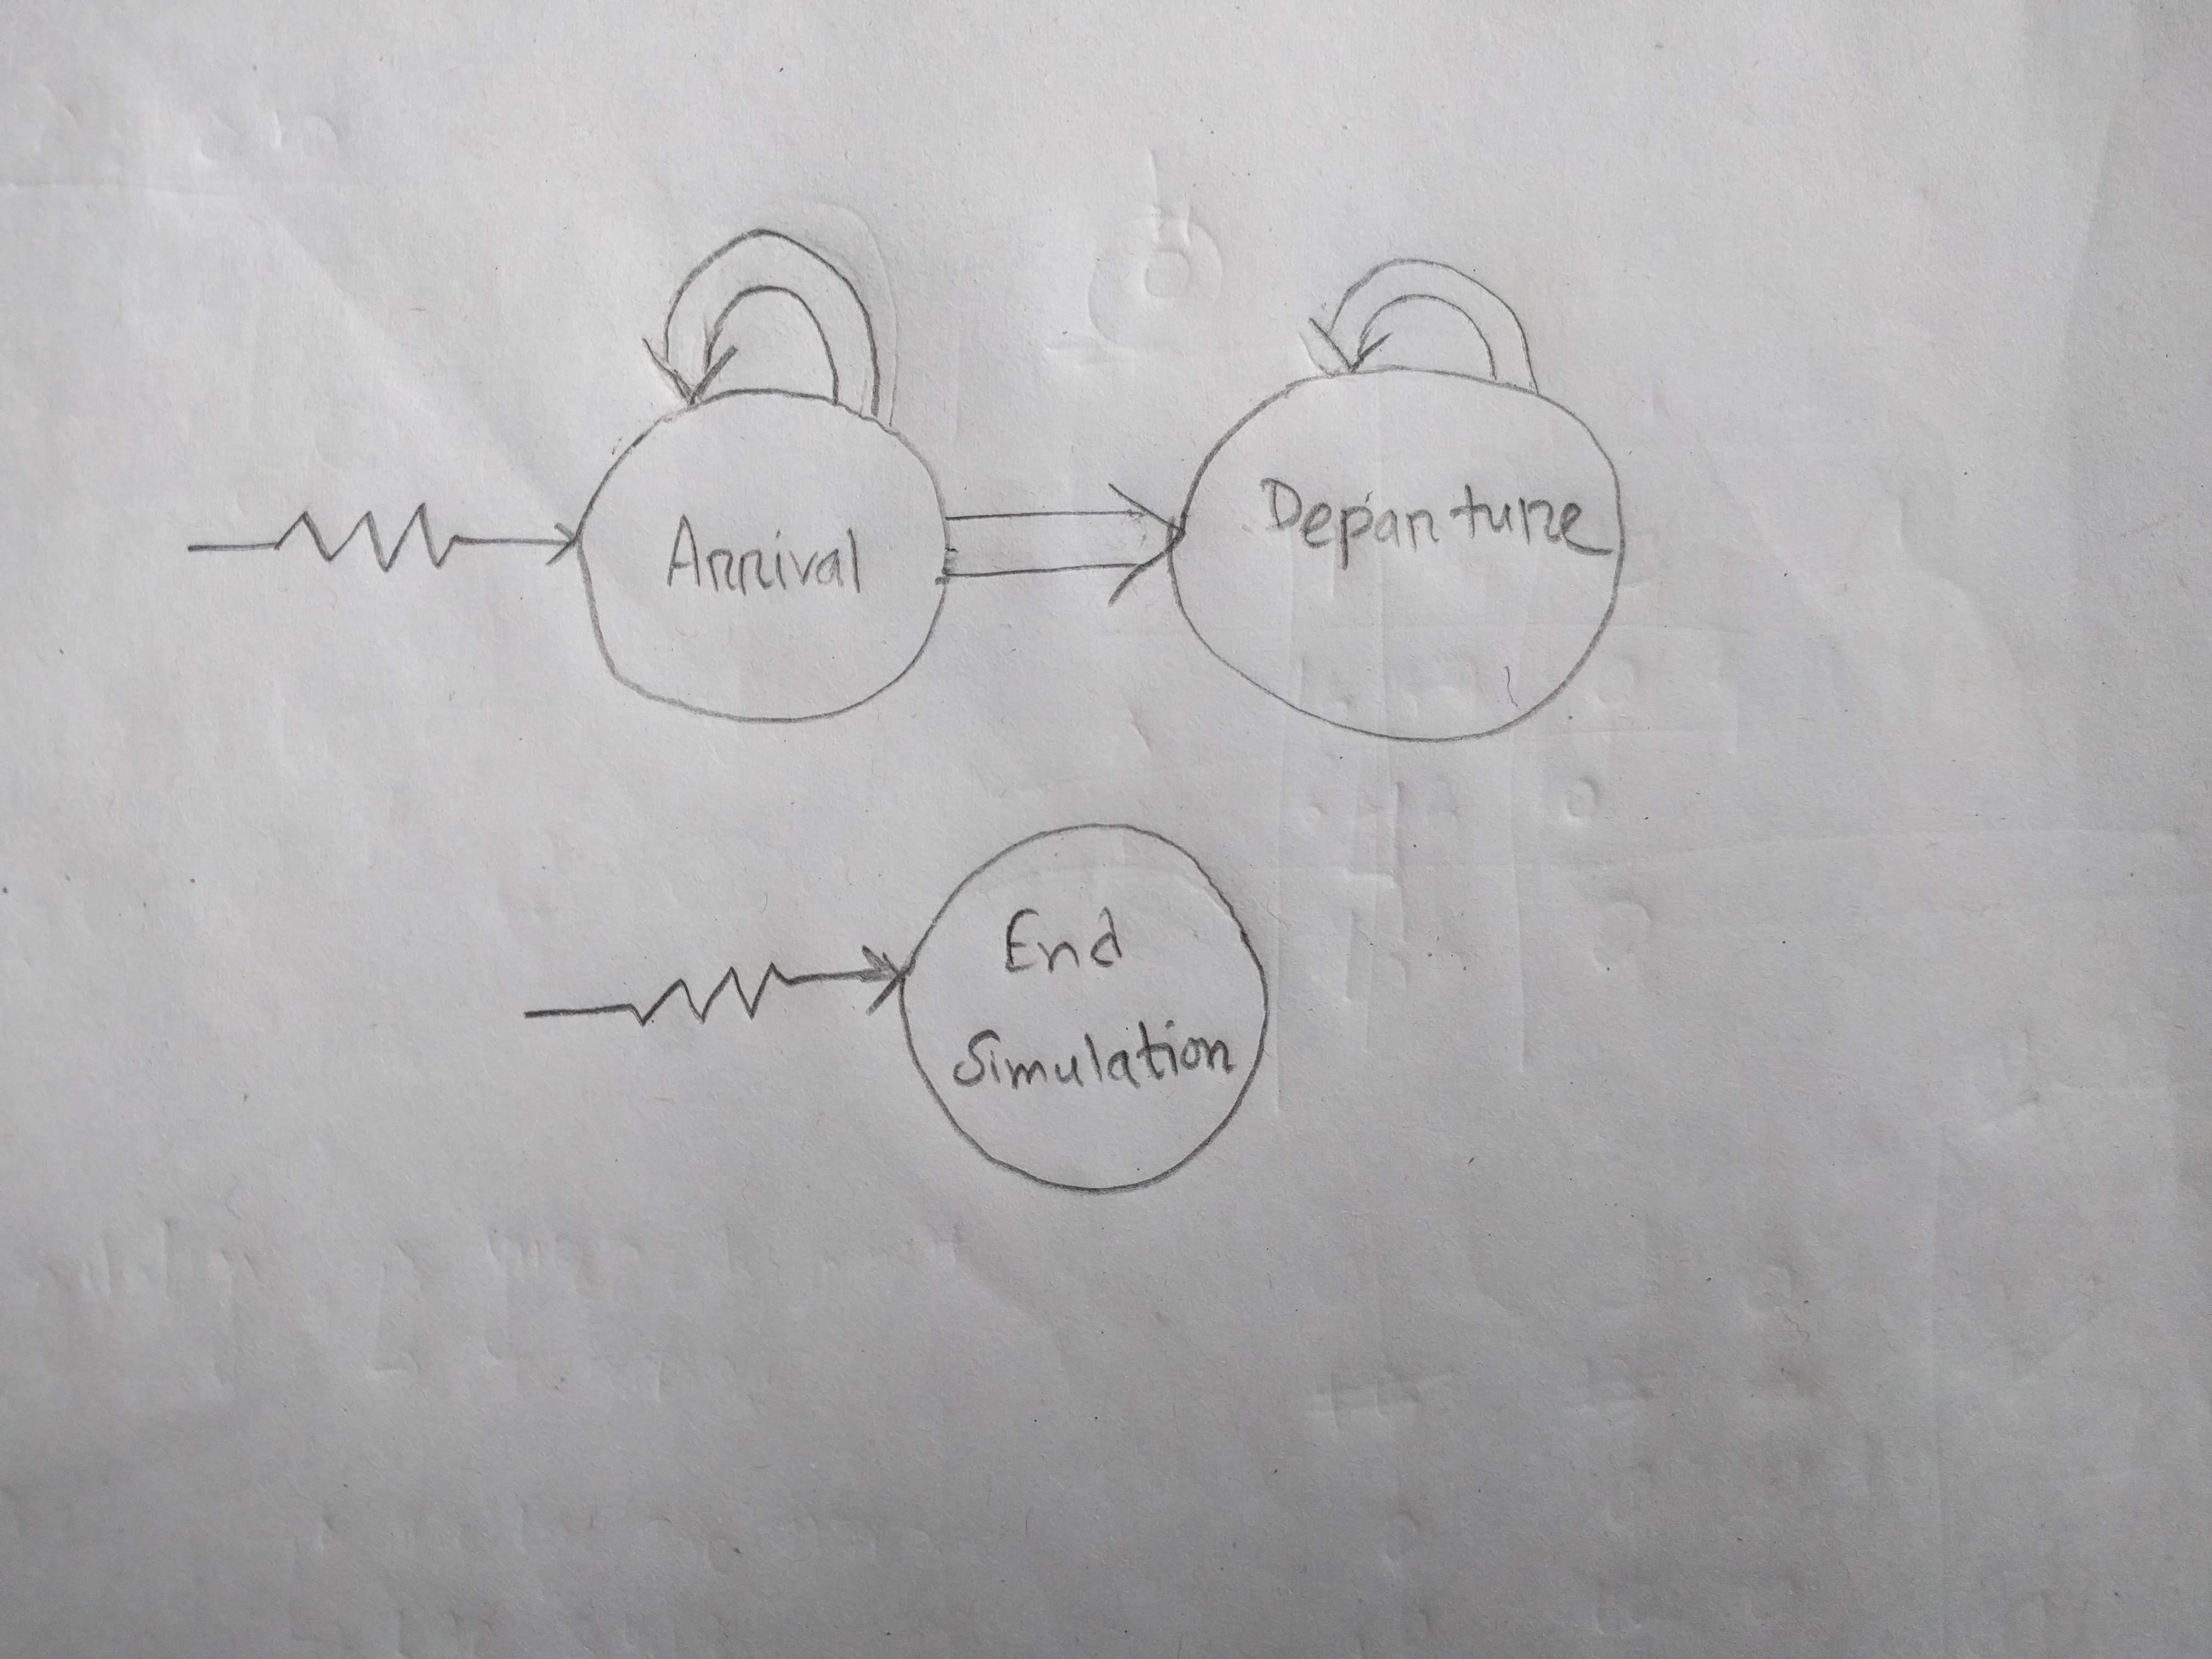 Arrival
Departure
End
Simulation